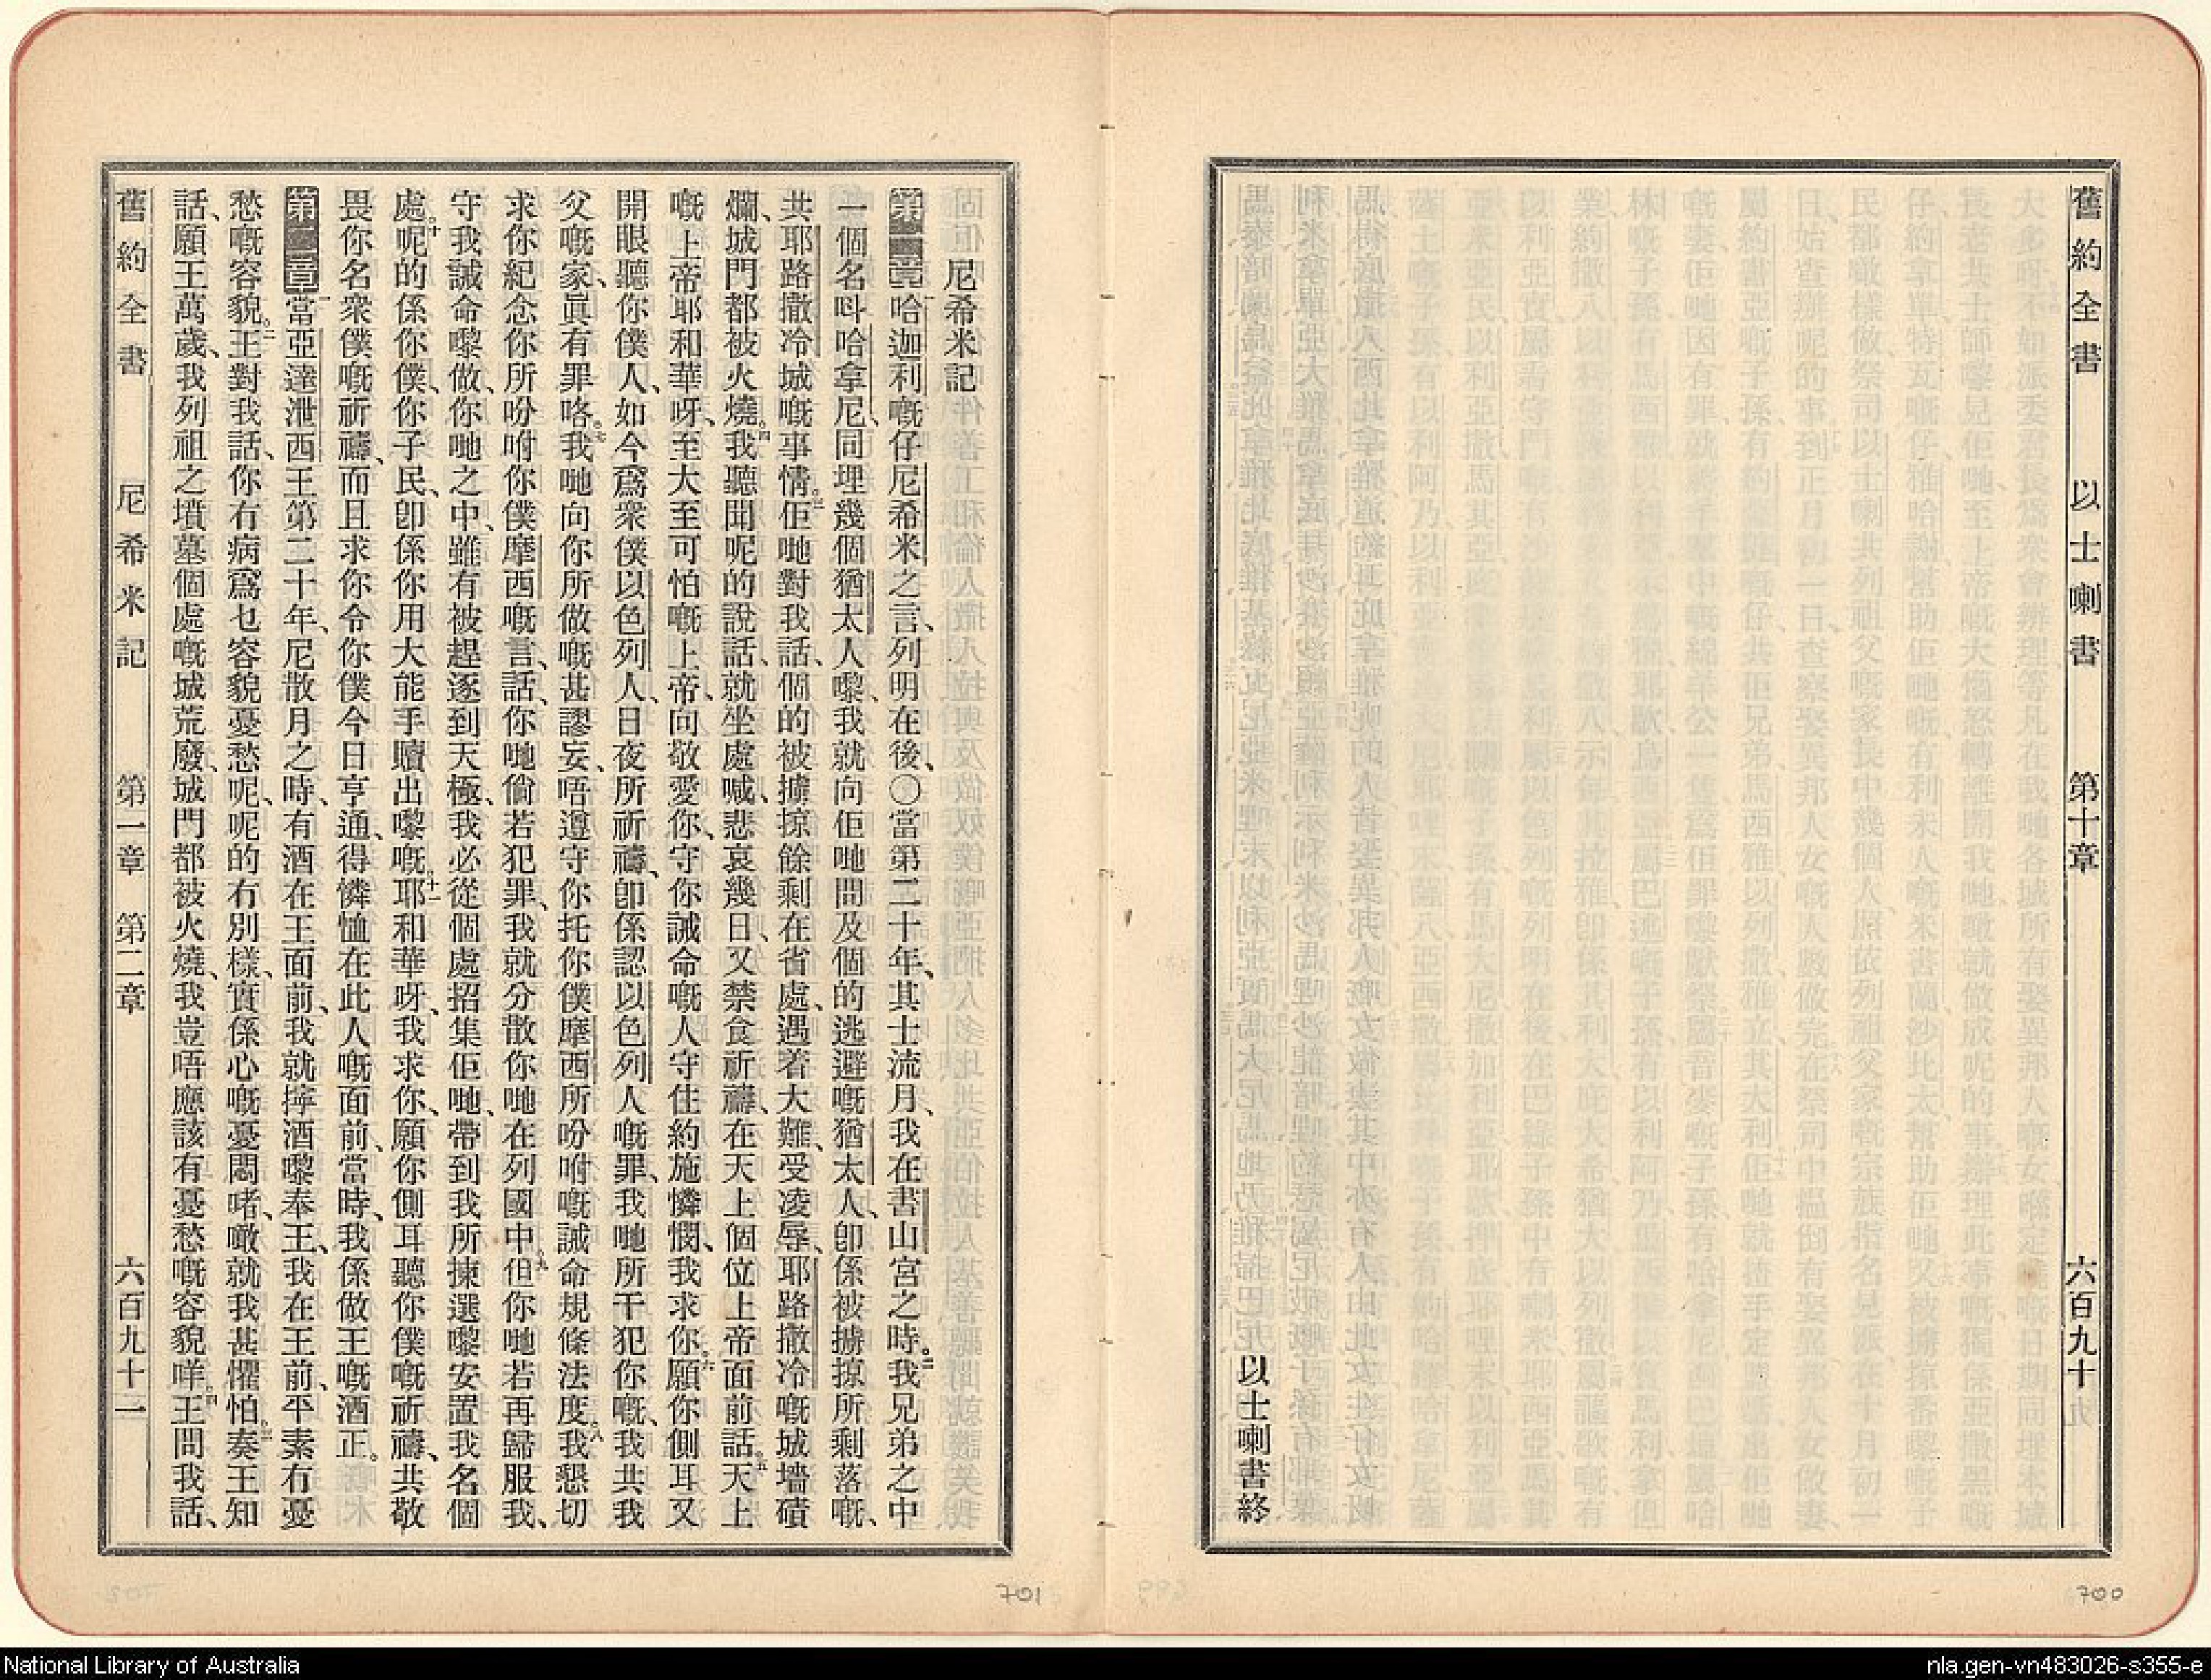 舊約全書 以士喇書 第十章 六百九十
以士喇書終
700
尼希米記
第一章哈迦利嘅仔尼希米之言、列明在後、〇當第二十年、其士流月、我在書山宮之時。二我兄弟之中
一個名呌哈拿尼、同埋幾個猶太人嚟、我就向佢哋問及個的逃避嘅猶太人、卽係被擄掠所剩落嘅、
共耶路撒冷城嘅事情。三佢哋對我話、個的被擄掠餘剩在省處、遇着大難、受凌辱、耶路撒冷嘅城墻磧
爛、城門都被火燒。四我聽聞呢的說話、就坐處喊、悲哀幾日、又禁食祈禱、在天上個位上帝面前話。五天上
嘅上帝耶和華呀、至大至可怕嘅上帝、向敬愛你、守你誡命嘅人守住約施憐憫、我求你。六願你側耳又
開眼聽你僕人、如今爲衆僕以色列人、日夜所祈禱、卽係認以色列人嘅罪、我哋所干犯你嘅、我共我
父嘅家、眞有罪咯。七我哋向你所做嘅甚謬妄、唔遵守你托你僕摩西所吩咐嘅誡命規條法度。八我懇切
求你紀念你所吩咐你僕摩西嘅言話、你哋倘若犯罪、我就分散你哋在列國中。九但你哋若再歸服我、
守我誡命嚟做、你哋之中、雖有被趕逐到天極、我必從個處招集佢哋、帶到我所揀選嚟安置我名個
處。十呢的係你僕、你子民、卽係你用大能手贖出嚟嘅。十一耶和華呀、我求你、願你側耳聽你僕嘅祈禱、共敬
畏你名衆僕嘅祈禱、而且求你令你僕今日亨通、得憐恤在此人嘅面前、當時、我係做王嘅酒正。
第二章一當亞達泄西王第二十年、尼散月之時、有酒在王面前、我就擰酒嚟奉王、我在王前、平素冇憂
愁嘅容貌。二王對我話、你冇病、爲乜容貌憂愁呢、呢的冇別樣、實係心嘅憂悶啫、噉就我甚懼怕。三奏王知
話、願王萬歲、我列祖之墳墓個處嘅城荒廢、城門都被火燒、我豈唔應該有憂愁嘅容貌咩。四王問我話、
舊約全書 尼希米記 第一章 第二章 六百九十一
701
National Library of Australia
nla.gen-vn483026-s355-e